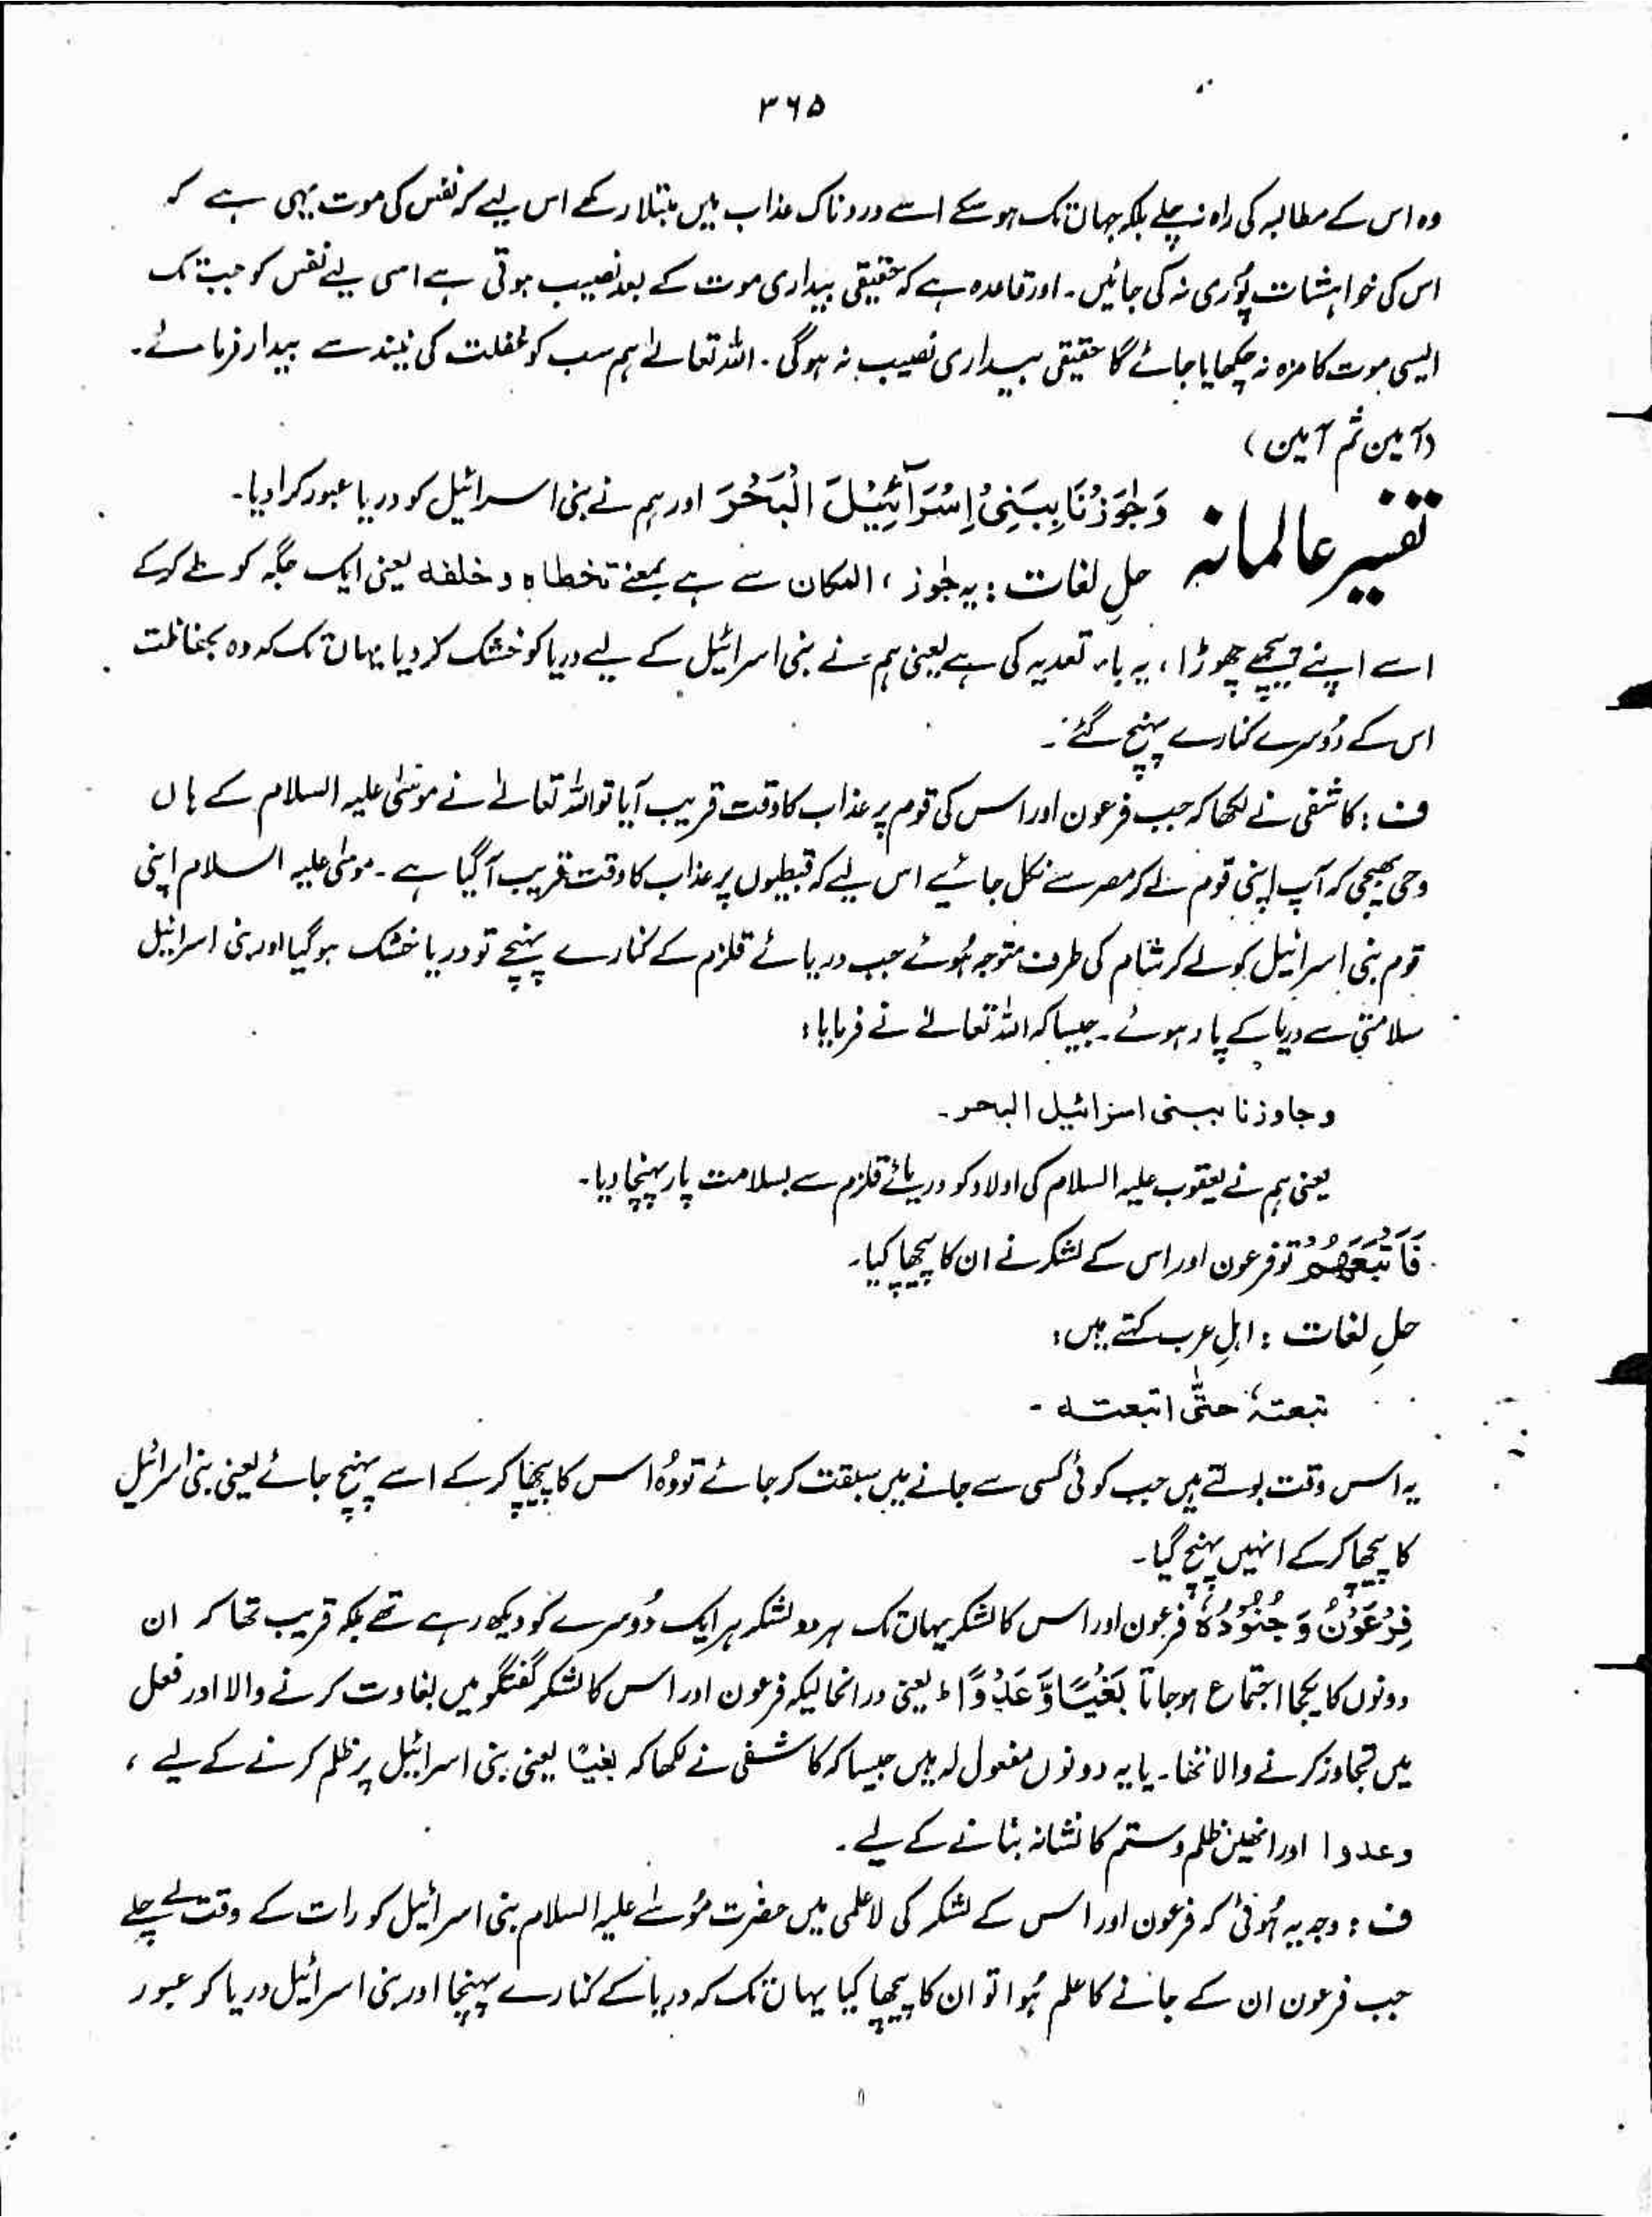 ۳۶۵
وہ اس کے مطالبہ کی راہ نہ چلے بلکہ جہاں تک ہو سکے اسے دردناک عذاب میں مبتلا رکھے اس لیے کہ نفس کی موت یہی ہے کہ
اس کی خواہشات پُوری نہ کی جائیں۔ اور قاعدہ ہے کہ حقیقی بیداری موت کے بعد نصیب ہوتی ہے اسی لیے نفس کو جب تک
ایسی موت کا مزہ نہ چکھایا جائے گا حقیقی بیداری نصیب نہ ہوگی۔ اللہ تعالےٰ ہم سب کو غفلت کی نیند سے بیدار فرمائے۔
(آمین ثم آمین)
تفسیر عالمانہ وَجٰوَزْنَا بِبَنِیْٓ اِسْرَآئِیْلَ الْبَحْرَ اور ہم نے بنی اسرائیل کو دریا عبور کرا دیا۔
حلِ لغات : یہ جٰوز، المکان سے ہے بمعنے تخطاہ و خلفہ یعنی ایک جگہ کو طے کرکے
اسے اپنے پیچھے چھوڑا، یہ باء تعدیہ کی ہے یعنی ہم نے بنی اسرائیل کے لیے دریا کو خشک کر دیا یہاں تک کہ وہ بحفاظت
اس کے دُوسرے کنارے پہنچ گئے۔
ف : کاشفی نے لکھا کہ جب فرعون اور اس کی قوم پر عذاب کا وقت قریب آیا تو اللہ تعالےٰ نے موسٰی علیہ السلام کے ہاں
وحی بھیجی کہ آپ اپنی قوم لے کر مصر سے نکل جائیے اس لیے کہ قبطیوں پر عذاب کا وقت قریب آگیا ہے۔ موسٰی علیہ السلام اپنی
قوم بنی اسرائیل کو لے کر شام کی طرف متوجہ ہُوئے جب دریائے قلزم کے کنارے پہنچے تو دریا خشک ہو گیا اور بنی اسرائیل
سلامتی سے دریا کے پار ہوئے۔ جیسا کہ اللہ تعالےٰ نے فرمایا :
وجاوزنا ببنی اسرائیل البحر۔
یعنی ہم نے یعقوب علیہ السلام کی اولاد کو دریائے قلزم سے بسلامت پار پہنچا دیا۔
فَاَتْبَعَهُمْ تو فرعون اور اس کے لشکر نے ان کا پیچھا کیا۔
حلِ لغات : اہلِ عرب کہتے ہیں :
تبعتہٗ حتّٰی اتبعتہ ۔
یہ اس وقت بولتے ہیں جب کوئی کسی سے جانے میں سبقت کر جائے تو وُہ اس کا پیچھا کر کے اسے پہنچ جائے یعنی بنی اسرائیل
کا پیچھا کر کے انہیں پہنچ گیا۔
فِرْعَوْنُ وَ جُنُوْدُهٗ فرعون اور اس کا لشکر یہاں تک ہر دو لشکر ہر ایک دُوسرے کو دیکھ رہے تھے بلکہ قریب تھا کہ ان
دونوں کا یکجا اجتماع ہو جاتا بَغْیًا وَّ عَدْوًا ؕ یعنی درانحالیکہ فرعون اور اس کا لشکر گفتگو میں بغاوت کرنے والا اور فعل
میں تجاوز کرنے والا تھا۔ یا یہ دونوں مفعول لہ ہیں جیسا کہ کاشفی نے لکھا کہ بغیًا یعنی بنی اسرائیل پر ظلم کرنے کے لیے ،
وعدوا اور انھیں ظلم و ستم کا نشانہ بنانے کے لیے۔
ف : وجہ یہ ہُوئی کہ فرعون اور اس کے لشکر کی لاعلمی میں حضرت مُوسٰے علیہ السلام بنی اسرائیل کو رات کے وقت لے چلے
جب فرعون ان کے جانے کا علم ہُوا تو ان کا پیچھا کیا یہاں تک کہ دریا کے کنارے پہنچا اور بنی اسرائیل دریا کو عبور